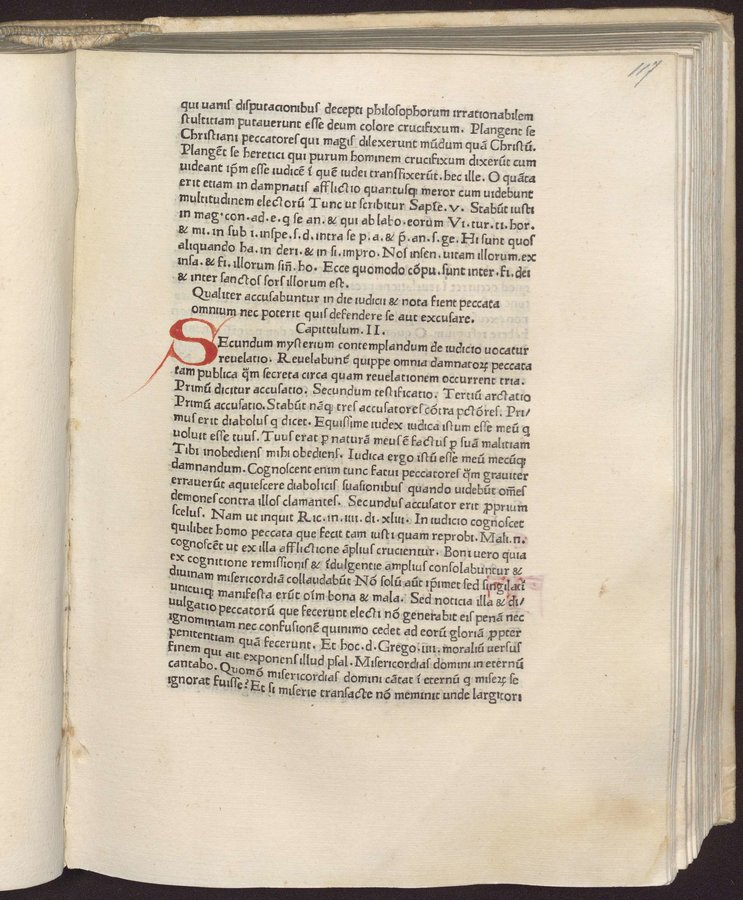 117
qui uanis disputacionibus decepti philosophorum irrationabilem
stultitiam putauerunt esse deum colore crucifixum. Plangent se
Christiani peccatores qui magis dilexerunt mūdum quā Christū.
Plangēt se heretici qui purum hominem crucifixum dixerūt cum
uideant ip̄m esse iudicē ī quē iudei transfixerūt. hec ille. O quāta
erit etiam in dampnatis afflictio quantusq; meror cum uidebunt
multitudinem electorū Tunc ut scribitur Sapīe. v. Stabūt iusti
in mag. con. ad. e. q se an. & qui ab labo. eorum Vi. tur. ti. hor.
& mi. in sub i. inspe. s. d. intra se p. a. & p̄. an. s. ge. Hi sunt quos
aliquando ha. in deri. & in si. impro. Nos insen. uitam illorum. ex
insa. & fi. illorum siñ. ho. Ecce quomodo cōpu. sunt inter. fi. dei
& inter sanctos sors illorum est.
Qualiter accusabuntur in die iudicii & nota fient peccata
omnium nec poterit quis defendere se aut excusare.
Capittulum. II.
SEcundum mysterium contemplandum de iudicio uocatur
reuelatio. Reuelabunt̄ quippe omnia damnatoꝝ peccata
tam publica q̄m secreta circa quam reuelationem occurrent tria.
Primū dicitur accusatio. Secundum testificatio. Tertiū arctatio
Primū accusatio. Stabūt nāq; tres accusatores cōtra pctōres. Pri/
mus erit diabolus q dicet. Equissime iudex iudica istum esse meū q
uoluit esse tuus. Tuus erat ꝑ naturā meus ē factus ꝑ suā malitiam
Tibi inobediens mihi obediens. Iudica ergo istū esse meū mecūq;
damnandum. Cognoscent enim tunc fatui peccatores q̄m grauiter
errauerūt aquiescere diabolicis suasionibus quando uidebūt om̄es
demones contra illos clamantes. Secundus accusator erit ꝓprium
scelus. Nam ut inquit Ric. in. iiii. di. xliii. In iudicio cognoscet
quilibet homo peccata que fecit tam iusti quam reprobi. Mali. n.
cognoscēt ut ex illa afflictione āplius crucientur. Boni uero quia
ex cognitione remissionis & īdulgentie amplius consolabuntur &
diuinam misericordiā collaudabūt Nō solū aūt ip̄imet sed singulari
unicuiq; manifesta erūt oīm bona & mala. Sed noticia illa & di/
uulgatio peccatorū que fecerunt electi nō generabit eis penā nec
ignominiam nec confusionē quinimo cedet ad eorū gloriā ꝓpter
penitentiam quā fecerunt. Et hoc. d. Grego. iiii. moraliū uersus
finem qui ait exponens illud psal. Misericordias domini in eternū
cantabo. Quomō misericordias domini cātat ī eternū q miseꝝ se
ignorat fuisse? Et si miserie transacte nō meminit unde largitori